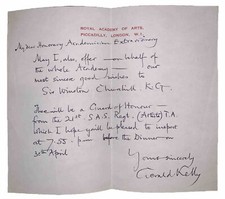 ROYAL ACADEMY OF ARTS,
PICCADILLY, LONDON, W.1.
My dear Honorary Academician Extraordinary
May I, also, offer — on behalf of
the whole Academy — our
most sincere good wishes to
Sir Winston Churchill K.G.
There will be a Guard of Honour —
from the 21st S.A.S. Regt. (Artists) T.A.
which I hope you'll be pleased to inspect
at 7.55 p.m. before the Dinner on
30th April
Yours sincerely
Gerald Kelly